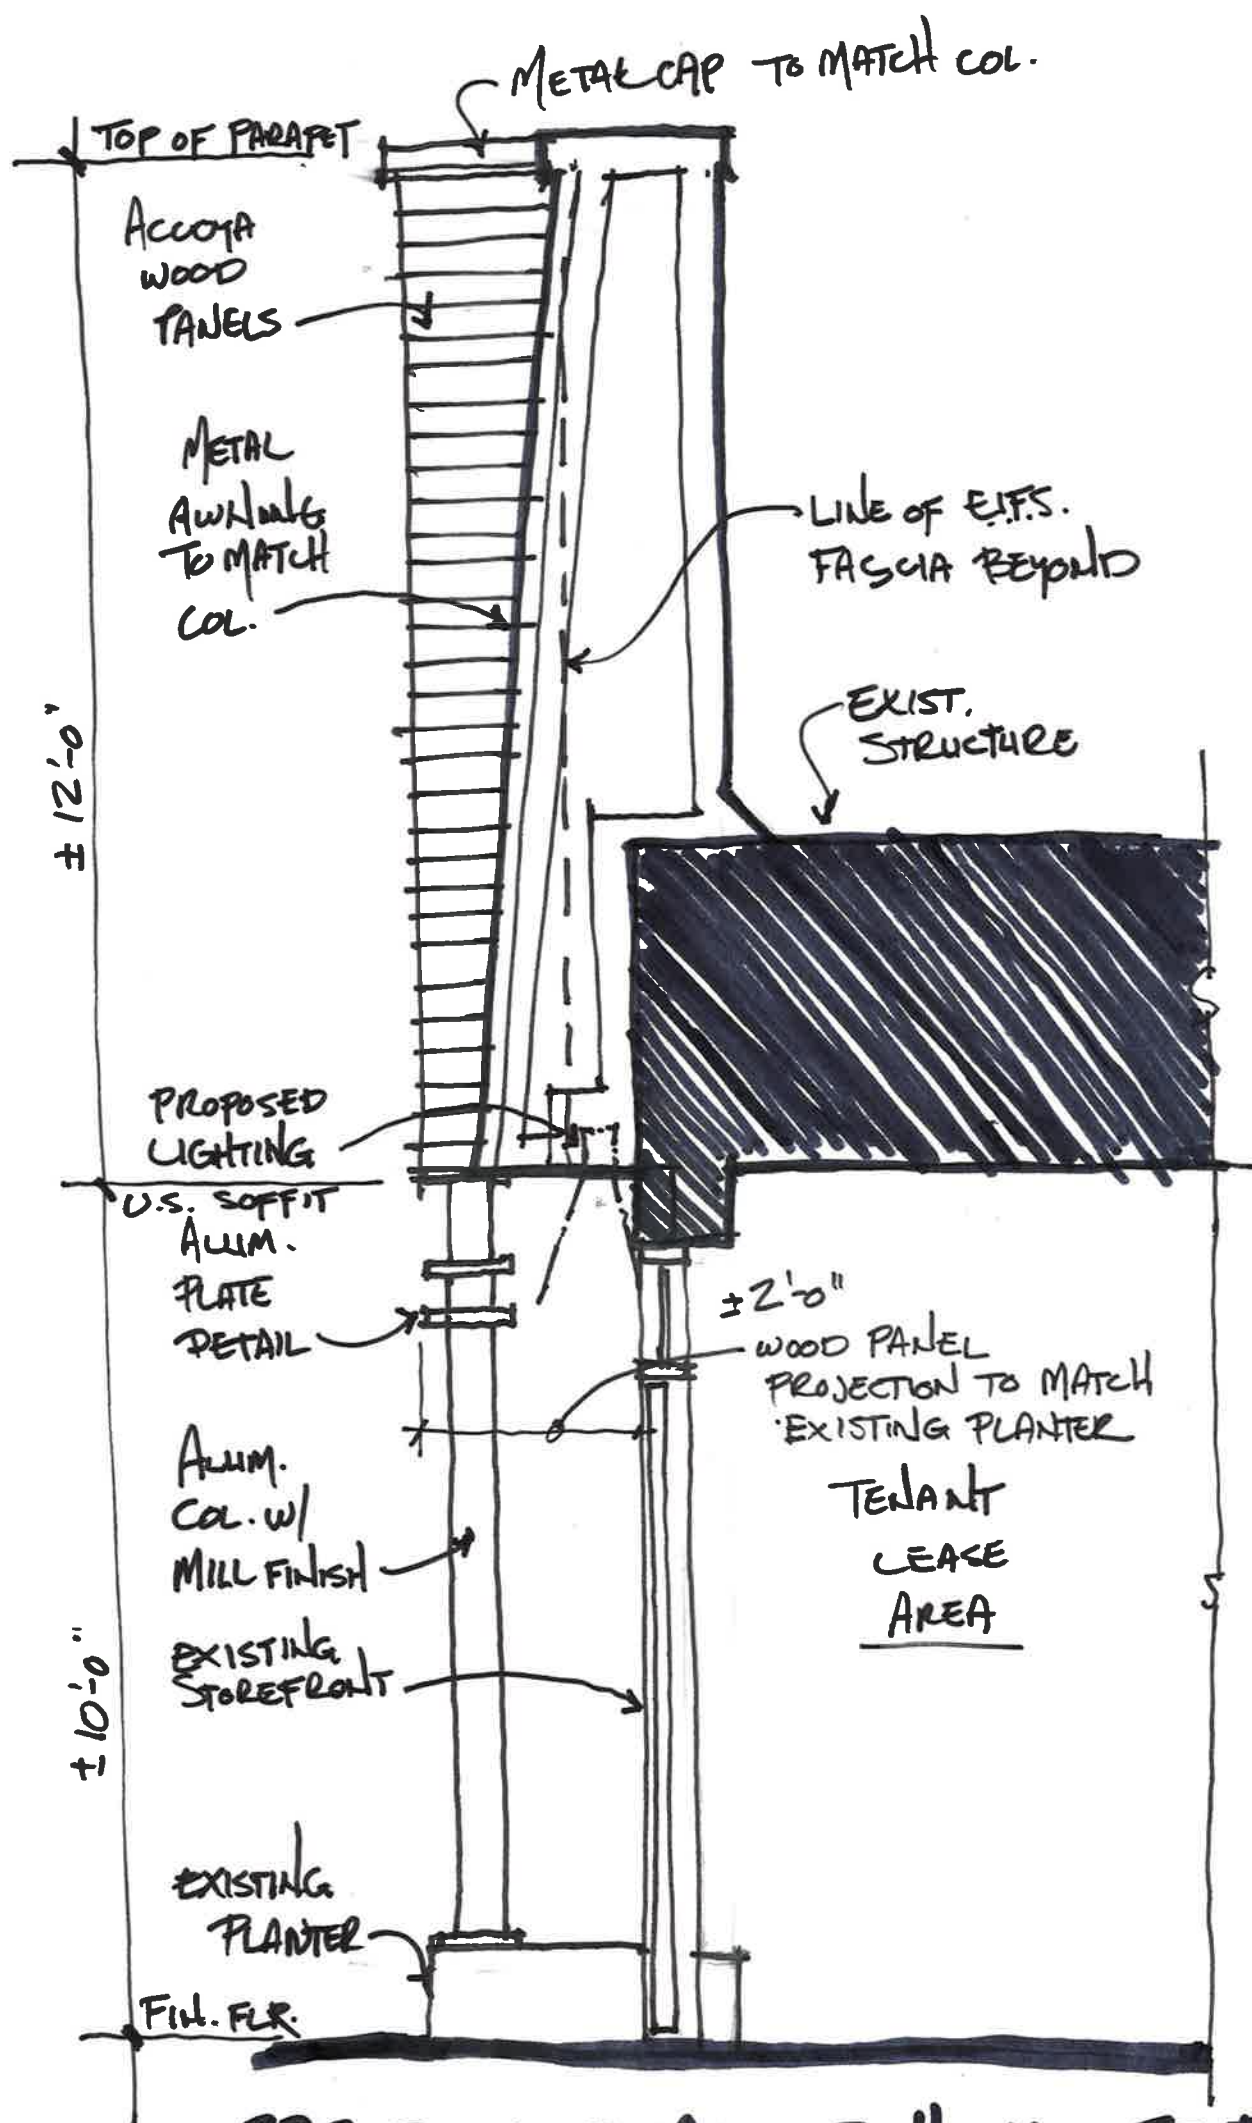 METAL CAP TO MATCH COL.
TOP OF PARAPET
ACCOYA
WOOD
PANELS
METAL
AWNING
TO MATCH
COL.
LINE OF E.I.F.S.
FASCIA BEYOND
EXIST.
STRUCTURE
±12'-0"
PROPOSED
LIGHTING
U.S. SOFFIT
ALUM.
PLATE
DETAIL
±2'-0"
WOOD PANEL
PROJECTION TO MATCH
EXISTING PLANTER
ALUM.
COL. W/
MILL FINISH
TENANT
LEASE
AREA
EXISTING
STOREFRONT
±10'-0"
EXISTING
PLANTER
FIN. FLR.